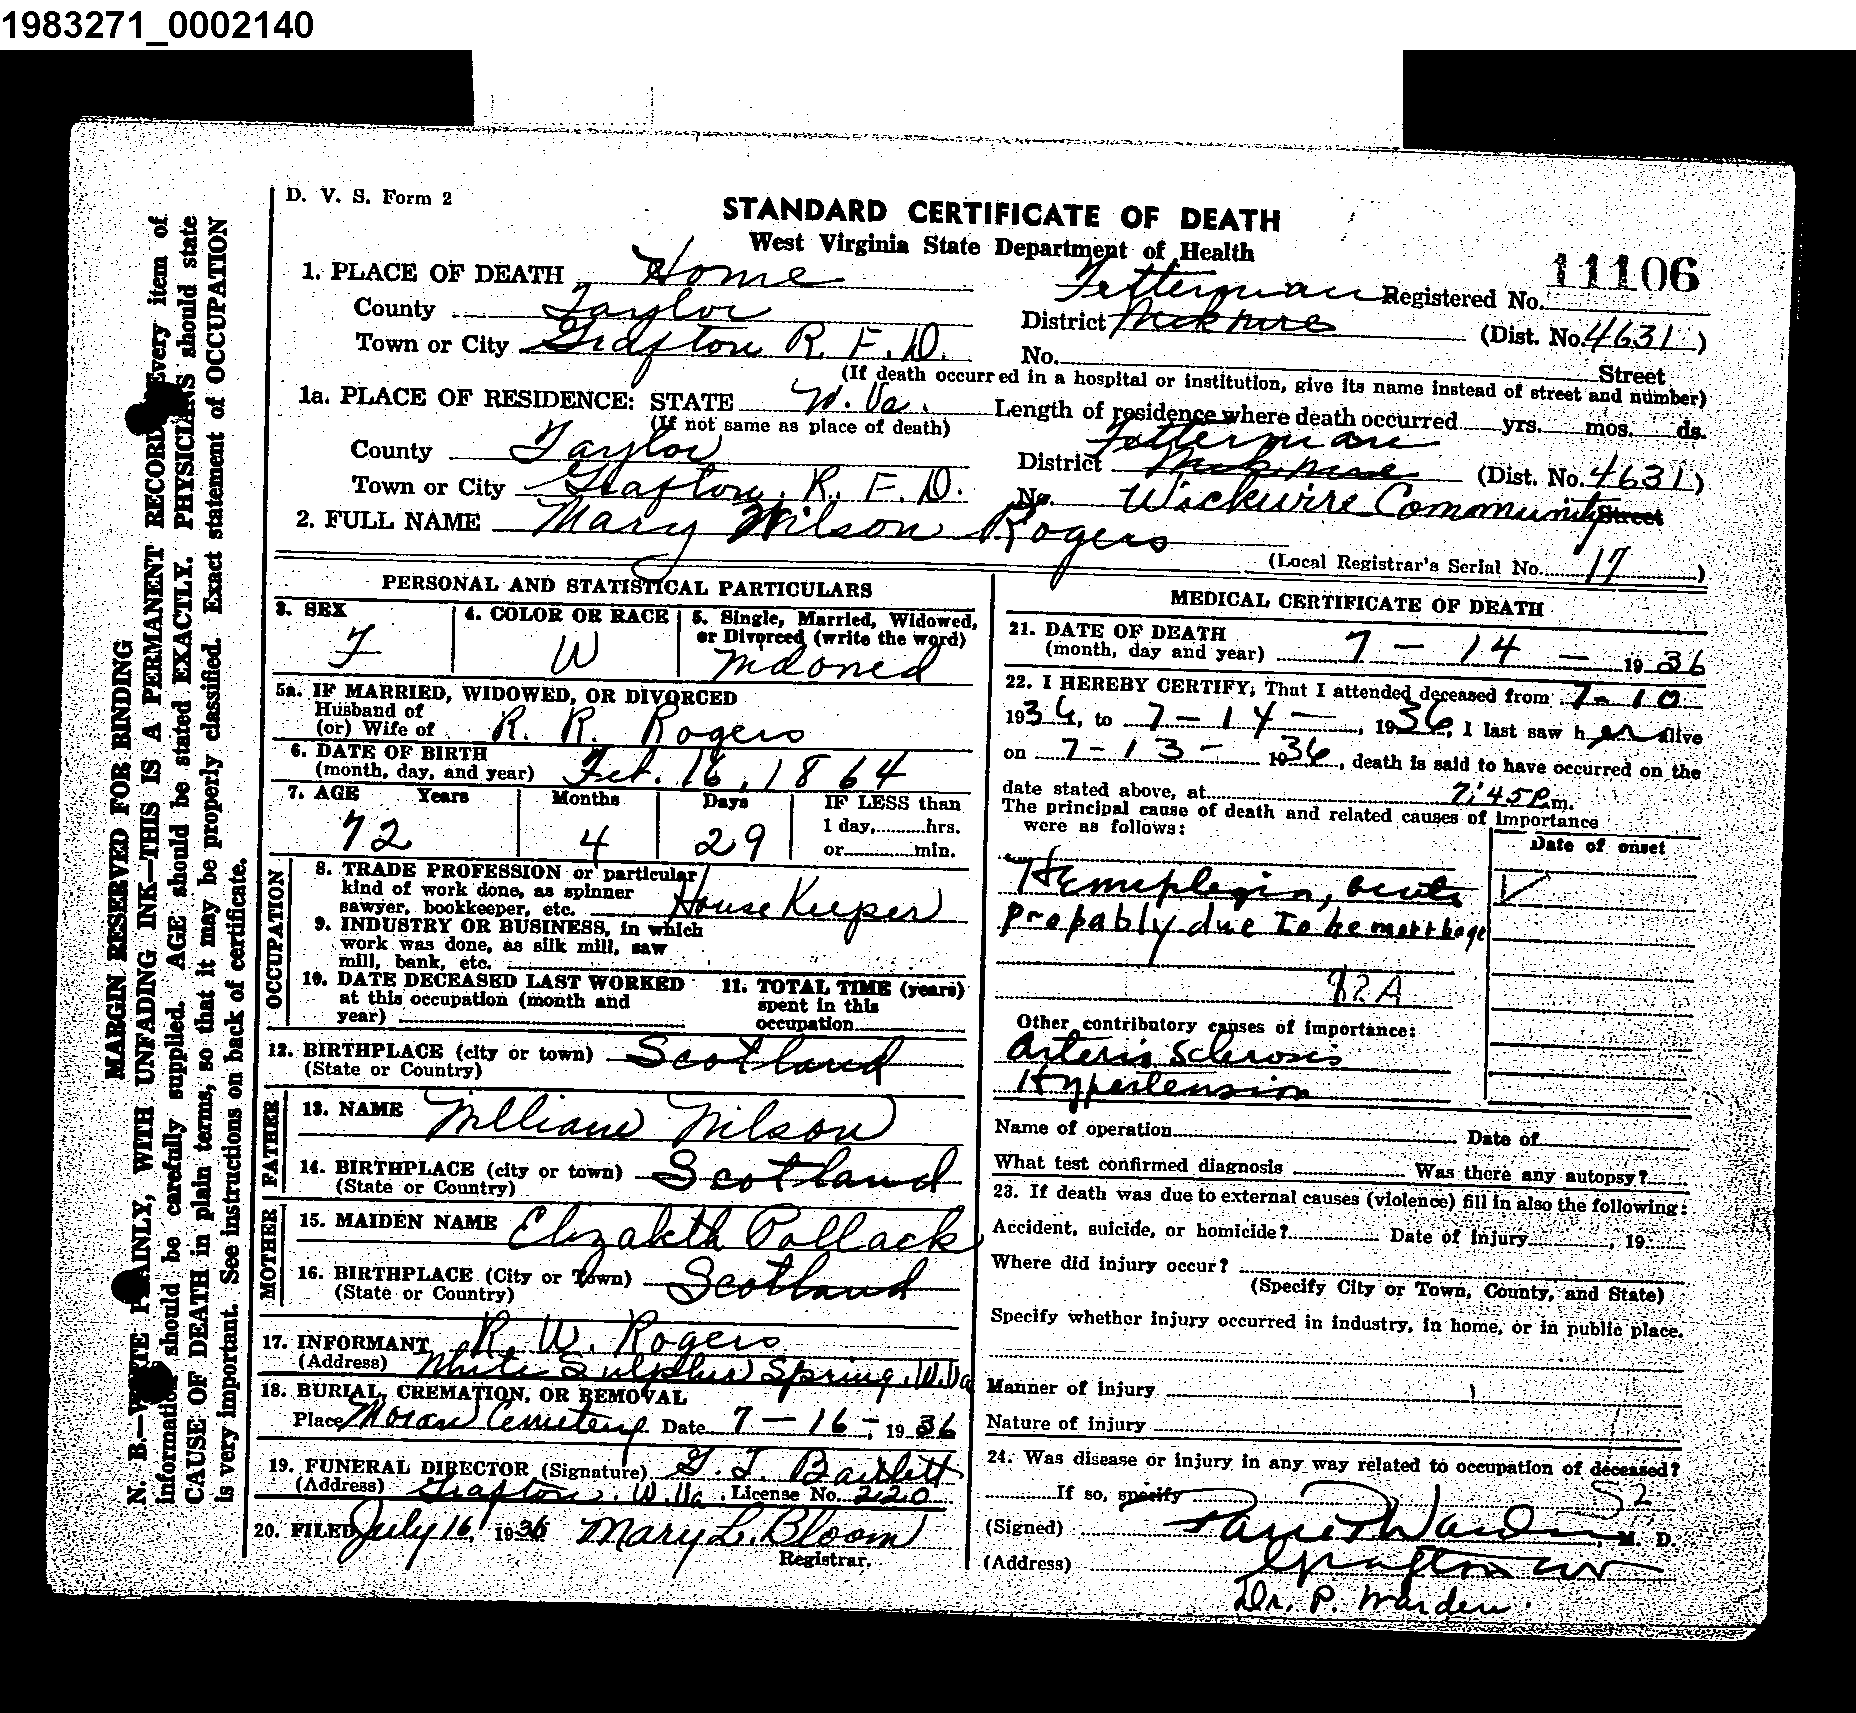 1983271_0002140
D. V. S. Form 2
STANDARD CERTIFICATE OF DEATH
West Virginia State Department of Health
11106
1. PLACE OF DEATH Home
Fetterman Registered No.
County Taylor
District (Dist. No. 4631)
Town or City Grafton R. F. D.
No. Street
(If death occurred in a hospital or institution, give its name instead of street and number)
1a. PLACE OF RESIDENCE: STATE W. Va. Length of residence where death occurred yrs. mos. ds.
(If not same as place of death)
Fetterman
County Taylor
District (Dist. No. 4631)
Town or City Grafton, R. F. D. No. Wickwire Community Street
2. FULL NAME Mary Wilson Rogers
(Local Registrar's Serial No. 17)
PERSONAL AND STATISTICAL PARTICULARS
3. SEX
F
4. COLOR OR RACE
W
5. Single, Married, Widowed, or Divorced (write the word)
5a. IF MARRIED, WIDOWED, OR DIVORCED
Husband of
(or) Wife of R. R. Rogers
6. DATE OF BIRTH
(month, day, and year) Feb. 16, 1864
7. AGE Years Months Days IF LESS than
72 4 29 1 day, hrs.
or min.
OCCUPATION
8. TRADE PROFESSION or particular
kind of work done, as spinner
sawyer, bookkeeper, etc. House Keeper
9. INDUSTRY OR BUSINESS, in which
work was done, as silk mill, saw
mill, bank, etc.
10. DATE DECEASED LAST WORKED
at this occupation (month and
year)
11. TOTAL TIME (years)
spent in this
occupation
12. BIRTHPLACE (city or town) Scotland
(State or Country)
FATHER
13. NAME William Wilson
14. BIRTHPLACE (city or town) Scotland
(State or Country)
MOTHER
15. MAIDEN NAME Elizabeth Pollack
16. BIRTHPLACE (City or Town) Scotland
(State or Country)
17. INFORMANT R. W. Rogers
(Address) White Sulphur Spring, W. Va
18. BURIAL, CREMATION, OR REMOVAL
Place Moran Cemetery Date 7-16-, 1936
19. FUNERAL DIRECTOR (Signature) G. T. Bartlett
(Address) Grafton, W. Va. License No. 220
20. FILED July 16, 1936 Mary L. Bloom
Registrar.
MEDICAL CERTIFICATE OF DEATH
21. DATE OF DEATH
(month, day and year) 7 - 14 - 1936
22. I HEREBY CERTIFY, That I attended deceased from 7-10
1936, to 7-14-, 1936, I last saw her alive
on 7-13- 1936, death is said to have occurred on the
date stated above, at 7:45 P.m.
The principal cause of death and related causes of importance
were as follows:
Date of onset
Hemiplegia, acute
probably due to hemorrhage
82A
Other contributory causes of importance:
Arterio sclerosis
Hypertension
Name of operation Date of
What test confirmed diagnosis Was there any autopsy?
23. If death was due to external causes (violence) fill in also the following:
Accident, suicide, or homicide? Date of injury , 19
Where did injury occur?
(Specify City or Town, County, and State)
Specify whether injury occurred in industry, in home, or in public place.
Manner of injury
Nature of injury
24. Was disease or injury in any way related to occupation of deceased?
If so, specify
(Signed) Warden, M. D.
(Address) Grafton WV
Dr. P. Warden.
MARGIN RESERVED FOR BINDING
N. B.—WRITE PLAINLY, WITH UNFADING INK—THIS IS A PERMANENT RECORD. Every item of
information should be carefully supplied. AGE should be stated EXACTLY. PHYSICIANS should state
CAUSE OF DEATH in plain terms, so that it may be properly classified. Exact statement of OCCUPATION
is very important. See instructions on back of certificate.